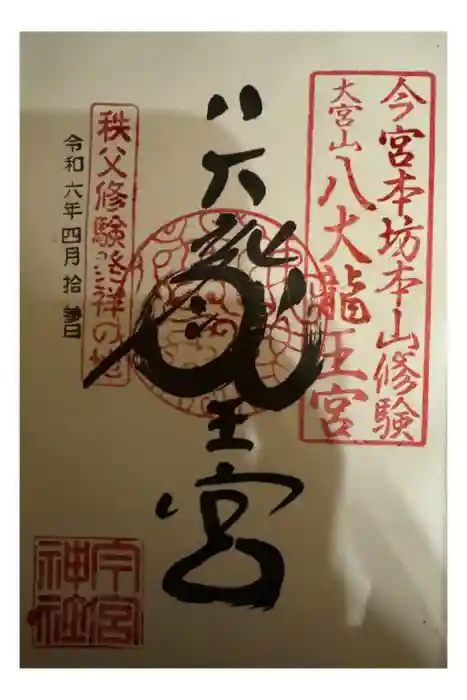 今宮本坊本山修験
大宮山八大龍王宮
八大龍王宮
秩父修験発祥の地
令和六年四月拾參日
今宮
神社